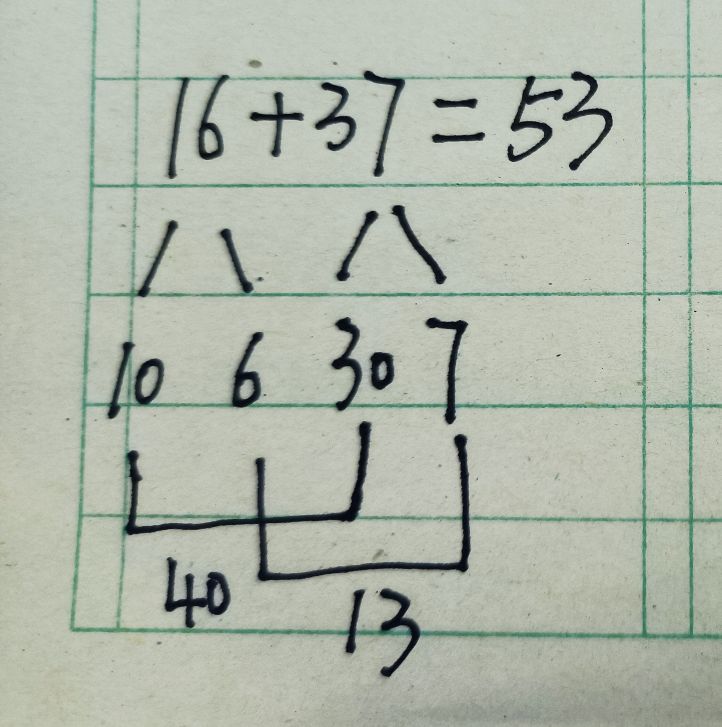 16+37=53
10 6 30 7
40
13